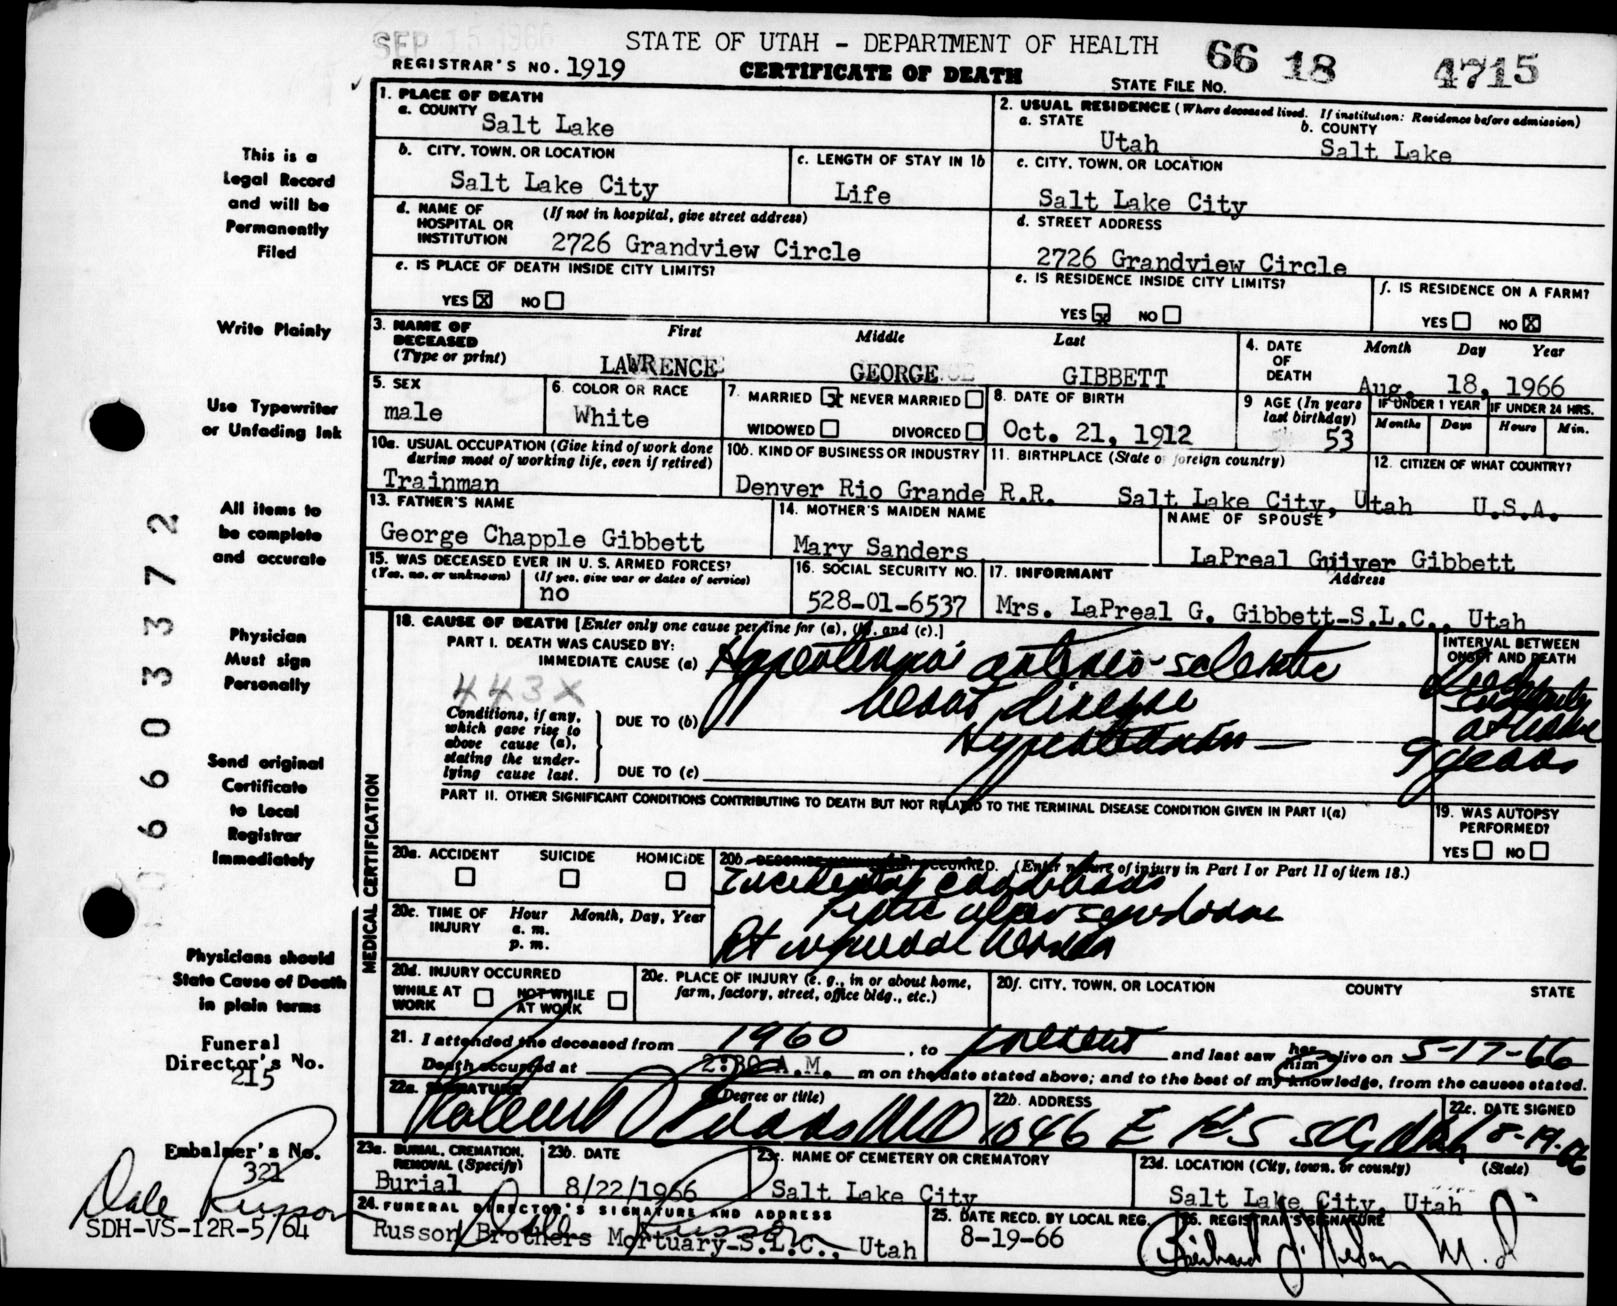 SEP 15 1966
STATE OF UTAH - DEPARTMENT OF HEALTH
66 18 4715
REGISTRAR'S NO. 1919
CERTIFICATE OF DEATH
STATE FILE NO.
1. PLACE OF DEATH
a. COUNTY
Salt Lake
2. USUAL RESIDENCE (Where deceased lived. If institution: Residence before admission)
a. STATE
Utah
b. COUNTY
Salt Lake
b. CITY, TOWN, OR LOCATION
Salt Lake City
c. LENGTH OF STAY IN 1b
Life
c. CITY, TOWN, OR LOCATION
Salt Lake City
d. NAME OF HOSPITAL OR INSTITUTION
(If not in hospital, give street address)
2726 Grandview Circle
d. STREET ADDRESS
2726 Grandview Circle
e. IS PLACE OF DEATH INSIDE CITY LIMITS?
YES X NO
e. IS RESIDENCE INSIDE CITY LIMITS?
YES X NO
f. IS RESIDENCE ON A FARM?
YES NO X
3. NAME OF DECEASED (Type or print)
First Middle Last
LAWRENCE GEORGE GIBBETT
4. DATE OF DEATH
Month Day Year
Aug. 18, 1966
5. SEX
male
6. COLOR OR RACE
White
7. MARRIED X NEVER MARRIED
WIDOWED DIVORCED
8. DATE OF BIRTH
Oct. 21, 1912
9 AGE (In years last birthday)
53
IF UNDER 1 YEAR
Months Days
IF UNDER 24 HRS.
Hours Min.
10a. USUAL OCCUPATION (Give kind of work done during most of working life, even if retired)
Trainman
10b. KIND OF BUSINESS OR INDUSTRY
Denver Rio Grande R.R.
11. BIRTHPLACE (State or foreign country)
Salt Lake City, Utah
12. CITIZEN OF WHAT COUNTRY?
U.S.A.
13. FATHER'S NAME
George Chapple Gibbett
14. MOTHER'S MAIDEN NAME
Mary Sanders
NAME OF SPOUSE
LaPreal Guiver Gibbett
15. WAS DECEASED EVER IN U. S. ARMED FORCES?
(Yes, no, or unknown) (If yes, give war or dates of service)
no
16. SOCIAL SECURITY NO.
528-01-6537
17. INFORMANT Address
Mrs. LaPreal G. Gibbett-S.L.C., Utah
18. CAUSE OF DEATH [Enter only one cause per line for (a), (b), and (c).]
PART I. DEATH WAS CAUSED BY:
IMMEDIATE CAUSE (a)
heart disease
443X
Conditions, if any, which gave rise to above cause (a), stating the underlying cause last.
DUE TO (b)
Hypertension
DUE TO (c)
INTERVAL BETWEEN ONSET AND DEATH
at least
9 years
PART II. OTHER SIGNIFICANT CONDITIONS CONTRIBUTING TO DEATH BUT NOT RELATED TO THE TERMINAL DISEASE CONDITION GIVEN IN PART I(a)
19. WAS AUTOPSY PERFORMED?
YES NO
MEDICAL CERTIFICATION
20a. ACCIDENT SUICIDE HOMICIDE
20b. DESCRIBE HOW INJURY OCCURRED. (Enter nature of injury in Part I or Part II of item 18.)
20c. TIME OF INJURY
Hour Month, Day, Year
a. m.
p. m.
20d. INJURY OCCURRED
WHILE AT WORK NOT WHILE AT WORK
20e. PLACE OF INJURY (e. g., in or about home, farm, factory, street, office bldg., etc.)
20f. CITY, TOWN, OR LOCATION COUNTY STATE
21. I attended the deceased from 1960, to present and last saw her him alive on 5-17-66
Death occurred at 2:30 A.M. m on the date stated above; and to the best of my knowledge, from the causes stated.
22a. SIGNATURE (Degree or title)
MD
22b. ADDRESS
1046 E
22c. DATE SIGNED
8-19-66
23a. BURIAL, CREMATION, REMOVAL (Specify)
Burial
23b. DATE
8/22/1966
23c. NAME OF CEMETERY OR CREMATORY
Salt Lake City
23d. LOCATION (City, town, or county) (State)
Salt Lake City, Utah
24. FUNERAL DIRECTOR'S SIGNATURE AND ADDRESS
Dale Russon
Russon Brothers Mortuary-S.L.C., Utah
25. DATE RECD. BY LOCAL REG.
8-19-66
26. REGISTRAR'S SIGNATURE
M.D
This is a
Legal Record
and will be
Permanently
Filed
Write Plainly
Use Typewriter
or Unfading Ink
All items to
be complete
and accurate
Physician
Must sign
Personally
Send original
Certificate
to Local
Registrar
Immediately
Physicians should
State Cause of Death
in plain terms
Funeral
Director's No.
215
Embalmer's No.
321
Dale Russon
SDH-VS-12R-5/64
6603372